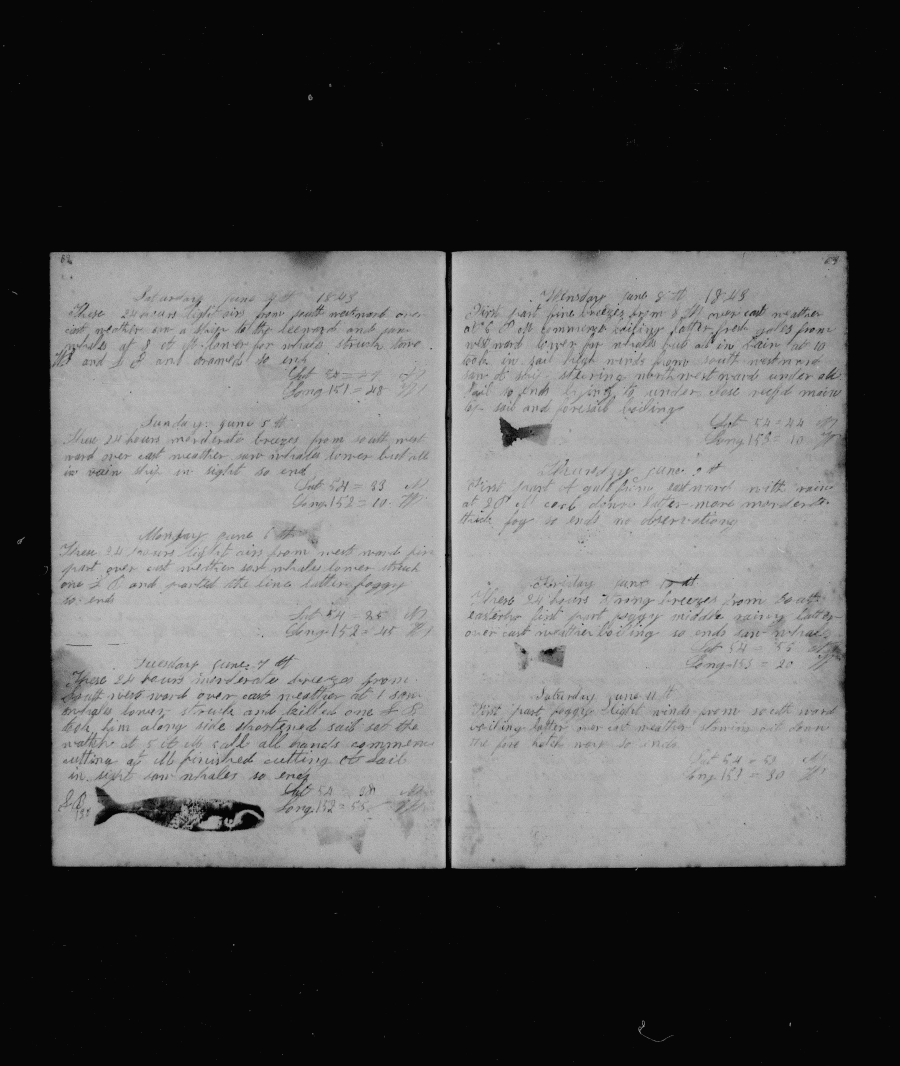 Saturday June 4th 1848
These 24 hours light airs from south west ward over
cast weather saw a ship to the leeward and saw
whales at 8 lower for whales struck two
and and drawed so ends
Lat 54 = 29 N
Long 151 = 48 W
Sunday June 5th
These 24 hours morderate breezes from south west
ward over cast weather saw whales lower but all
in vain ship in sight so ends
Lat 54 = 33 N
Long 152 = 10 W
Monday June 6th
These 24 hours light airs from west ward first
part over cast wether saw whales lower struck
one and parted the line latter foggy
so ends
Lat 54 = 25 N
Long 152 = 45 W
Tuesday June 7th
These 24 hours morderate breezes from
South west ward over cast weather at 1 saw
whales lower struck and killed one
took him along side shortened sail set the
watch at call all hands commence
cutting at M finished cutting sail
in sight saw whales so ends
Lat 54 = 28 N
Long 152 = 55 W
Wensday June 8th 1848
First part fine breezes from over cast weather
at 6 PM commence boiling latter fresh gales from
west ward lower for whales but all in vain at 10
took in sail high winds from south west ward
saw a ship steering northwest ward under all
sail so ends lying to under close reefd main
top sail and foresail boiling
Lat 54 = 44 N
Long 153 = 10 W
Thuresday June 9th
First part of gale from eastward with rain
at 2 PM cool down latter more morderate
thick fog so ends no observations
Friday June 10th
These 24 hours strong breezes from South
easterly first part foggy middle rainy latter
over cast weather boiling so ends saw whales
Lat 54 = 55 N
Long 153 = 20 W
Saturday June 11th
First part foggy light winds from south ward
boiling latter over cast weather down
the fore hatch so ends
Lat 54 = 50 N
Long 151 = 30 W